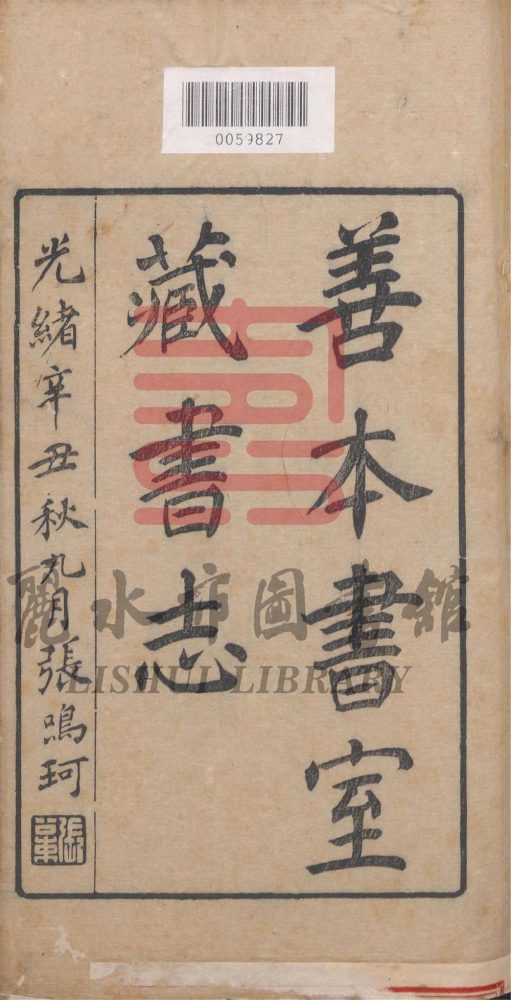 0059827
善本書室
藏書志
光緒辛丑秋九月張鳴珂
麗水市圖書館
LISHUI LIBRARY